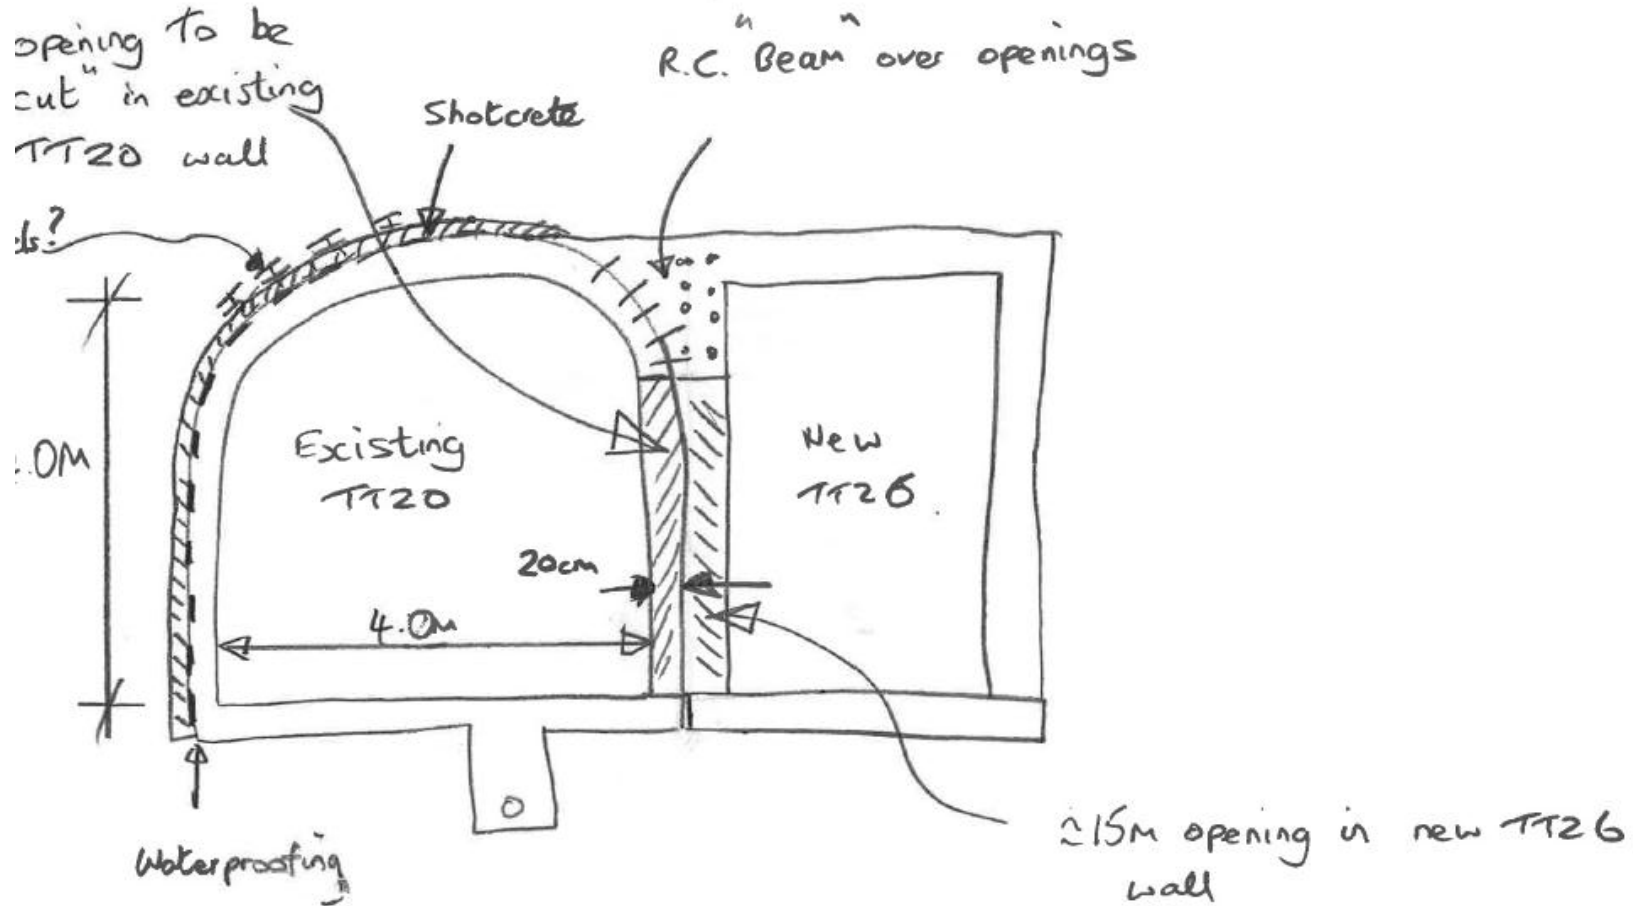 opening to be
cut" in existing
TT20 wall
els?
Shotcrete
R.C. "Beam" over openings
.0M
Existing
TT20
New
TT26
20cm
4.0m
Waterproofing
≈15m opening in new TT26
wall